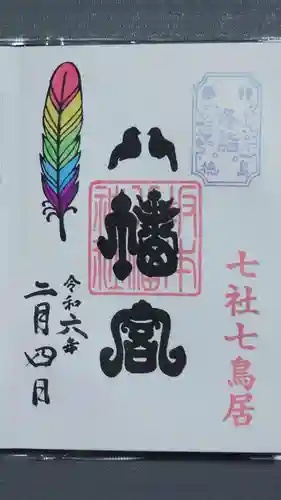 七社七鳥居
八幡宮
令和六年
二月四日